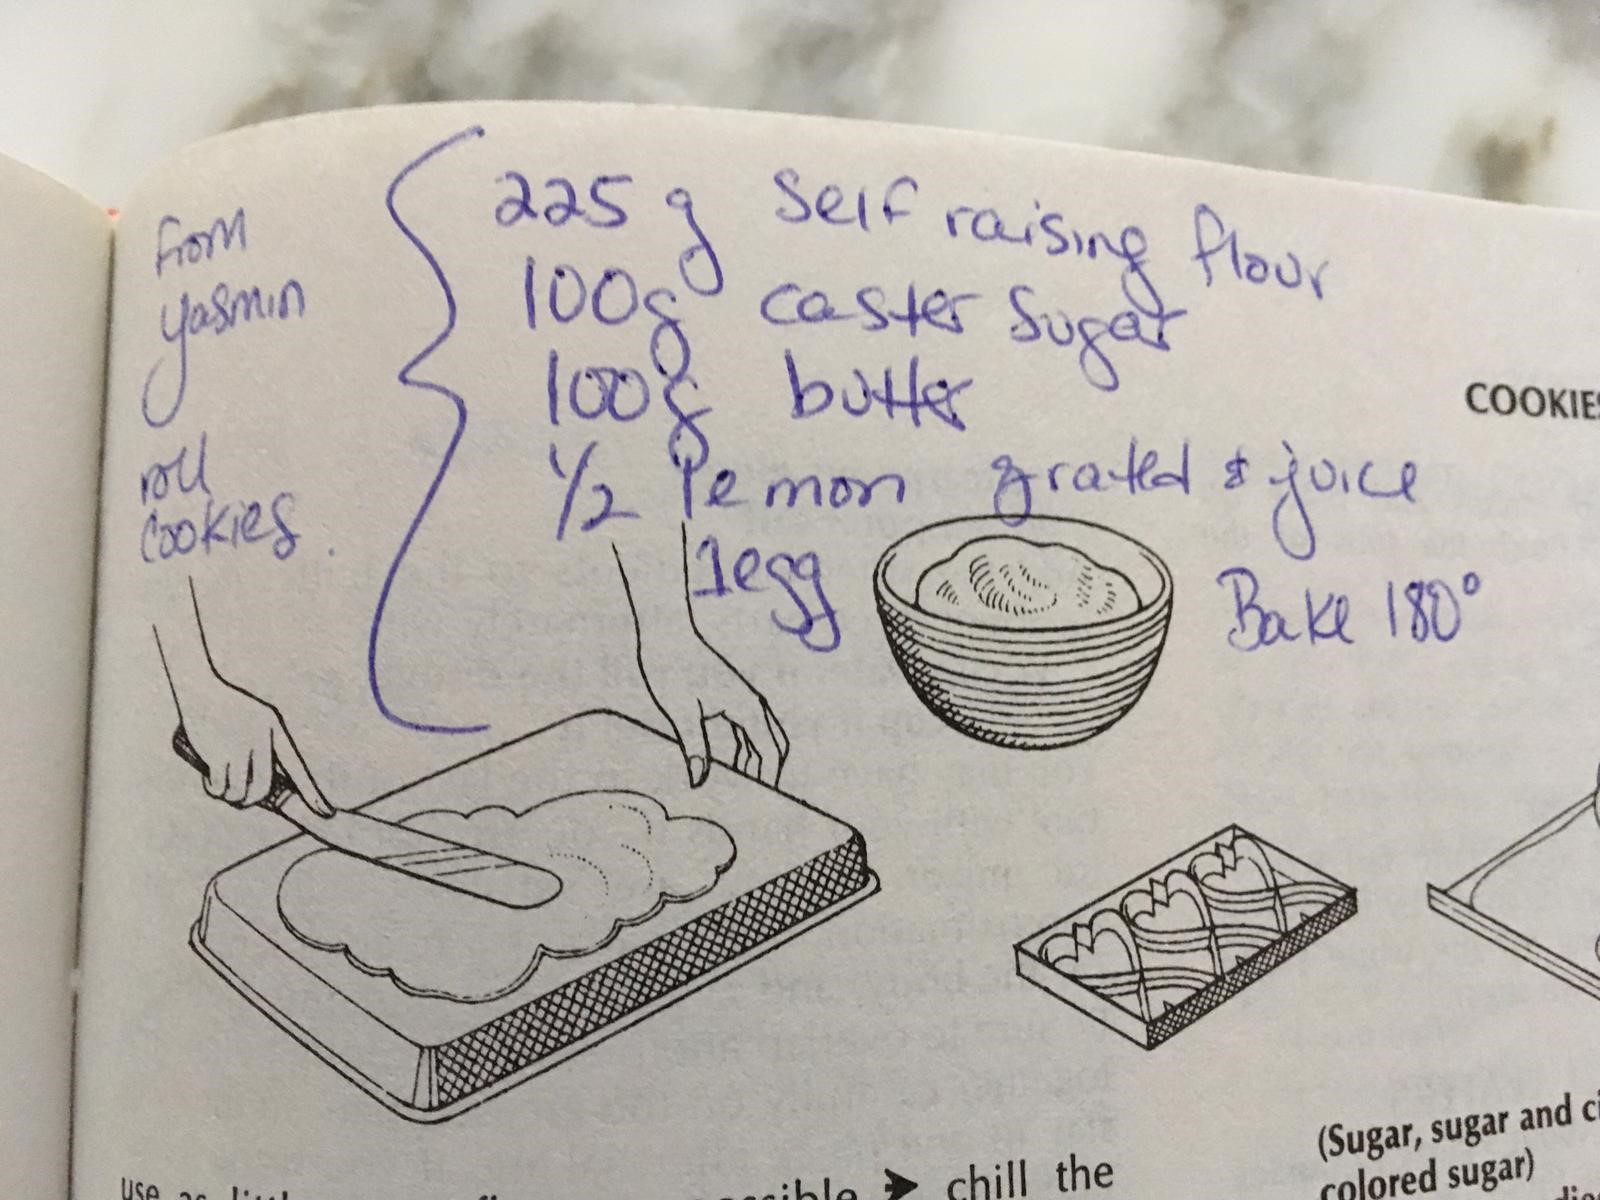 from
yasmin
roll
cookies.
225 g Self raising flour
100g caster Sugar
100g butter
1/2 lemon grated & juice
1 egg
Bake 180°
COOKIES
(Sugar, sugar and
colored sugar)
use as
➤ chill the